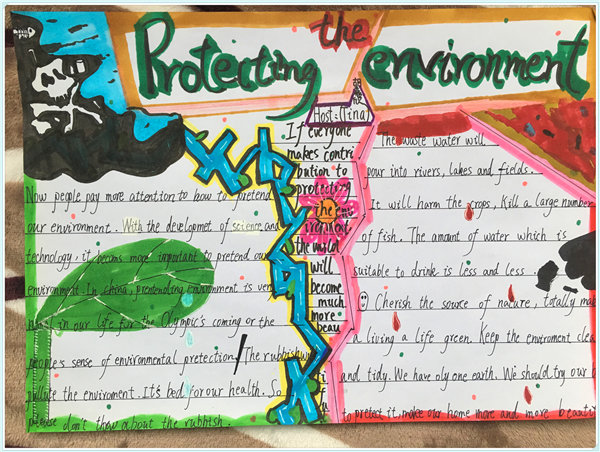 Protecting the environment
Host: (Tina)
Now people pay more attention to how to pretend
our environment. With the developmet of science and
technology. it becoms more important to pretend our
environment. In china, pretending environment is very
in our life for the Olympic's coming or the
people's sense of environmental pretection. The rubbish
pollute the enviroment. It's bed for our health. So
don't thow about the rubbish.
If everyone
makes contri
bution to
protecting
the env
ironment
the world
will
become
much
more
beau
ti
f
The waste water will
pour into rivers, lakes and fields.
It will harm the crops. Kill a large number
of fish. The amount of water which is
suitable to drink is less and less.
Cherish the source of nature, totally
a living a life green. Keep the enviroment clea
and tidy. We have oly one earth. We should try our b
to pretect it, make our home more and more beauti